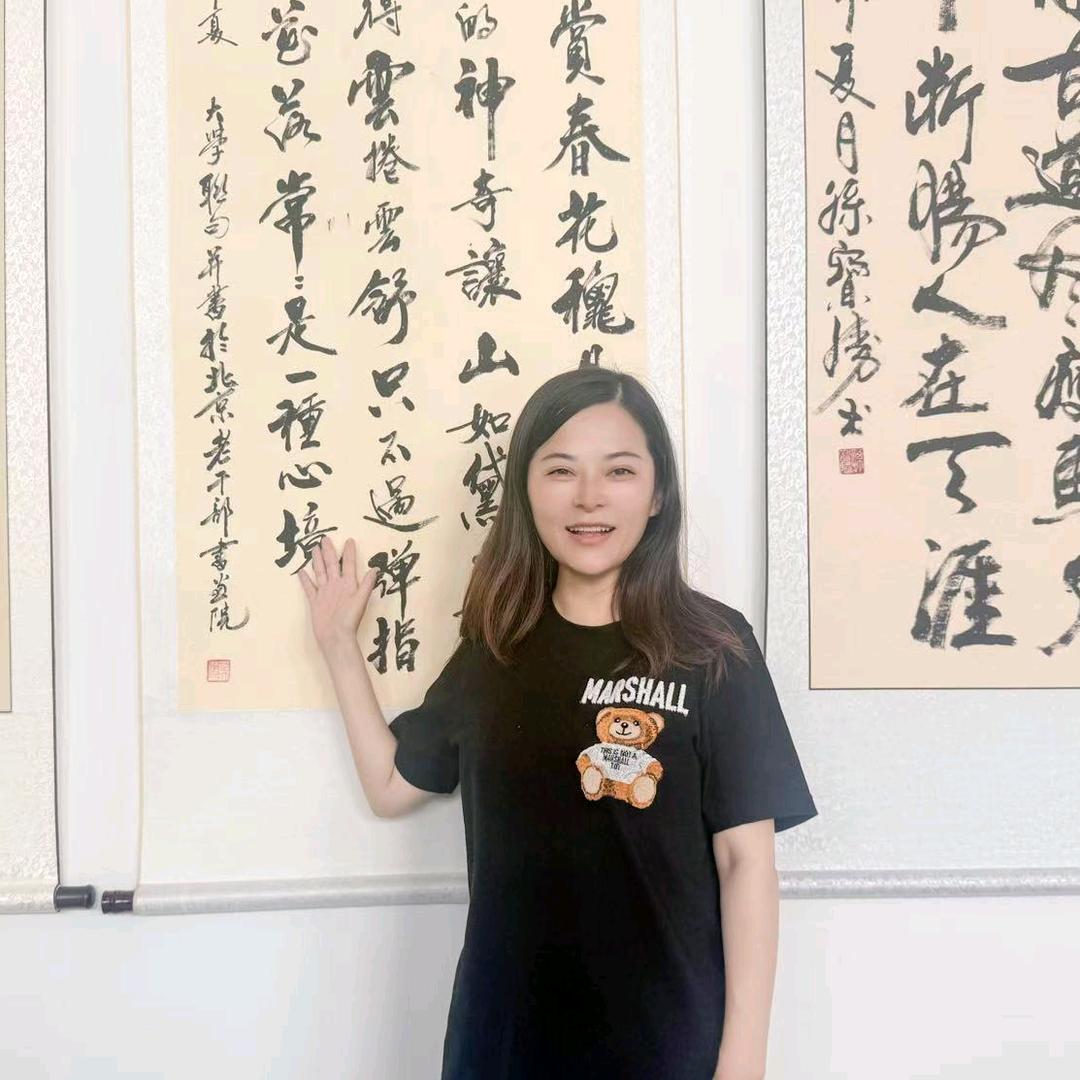 古道
瘦
斷腸人在天涯
夏月孫寶勝書
賞春花穠
的神奇讓山如黛
得雲捲雲舒只不過弹指
花落常〻是一種心境
夏 大學聯句并書於北京老干部書畫院
MARSHALL
THIS IS NOT A
MARSHALL
TOY